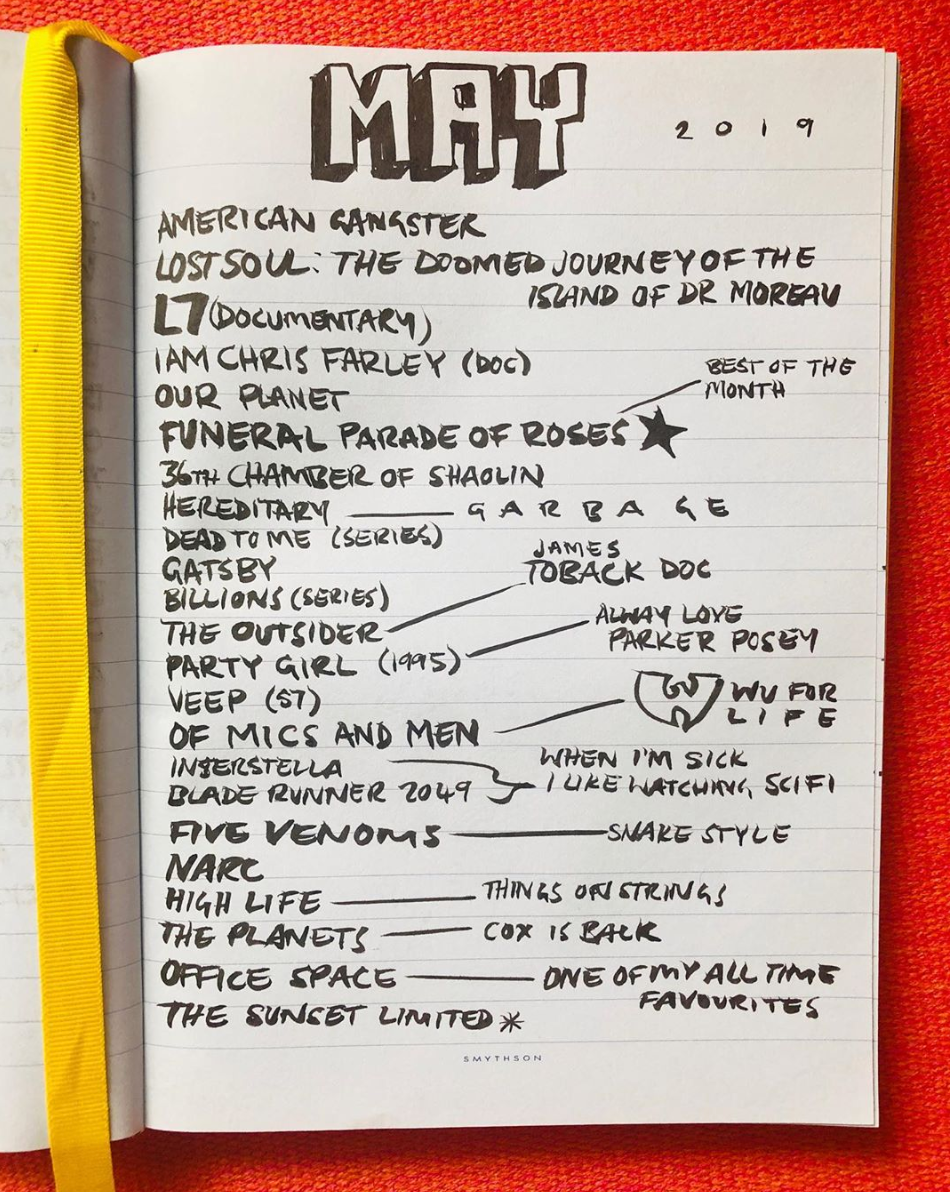 MAY 2019
AMERICAN GANGSTER
LOST SOUL: THE DOOMED JOURNEY OF THE
ISLAND OF DR MOREAU
L7 (DOCUMENTARY)
I AM CHRIS FARLEY (DOC)
BEST OF THE
MONTH
OUR PLANET
FUNERAL PARADE OF ROSES ★
36TH CHAMBER OF SHAOLIN
HEREDITARY — GARBAGE
DEAD TO ME (SERIES)
GATSBY
JAMES
TOBACK DOC
BILLIONS (SERIES)
THE OUTSIDER
ALWAY LOVE
PARKER POSEY
PARTY GIRL (1995)
VEEP (S7)
WU FOR
LIFE
OF MICS AND MEN
INTERSTELLA
BLADE RUNNER 2049
WHEN I'M SICK
I LIKE WATCHING SCIFI
FIVE VENOMS — SNAKE STYLE
NARC
HIGH LIFE — THINGS ON STRINGS
THE PLANETS — COX IS BACK
OFFICE SPACE — ONE OF MY ALL TIME
FAVOURITES
THE SUNSET LIMITED *
SMYTHSON